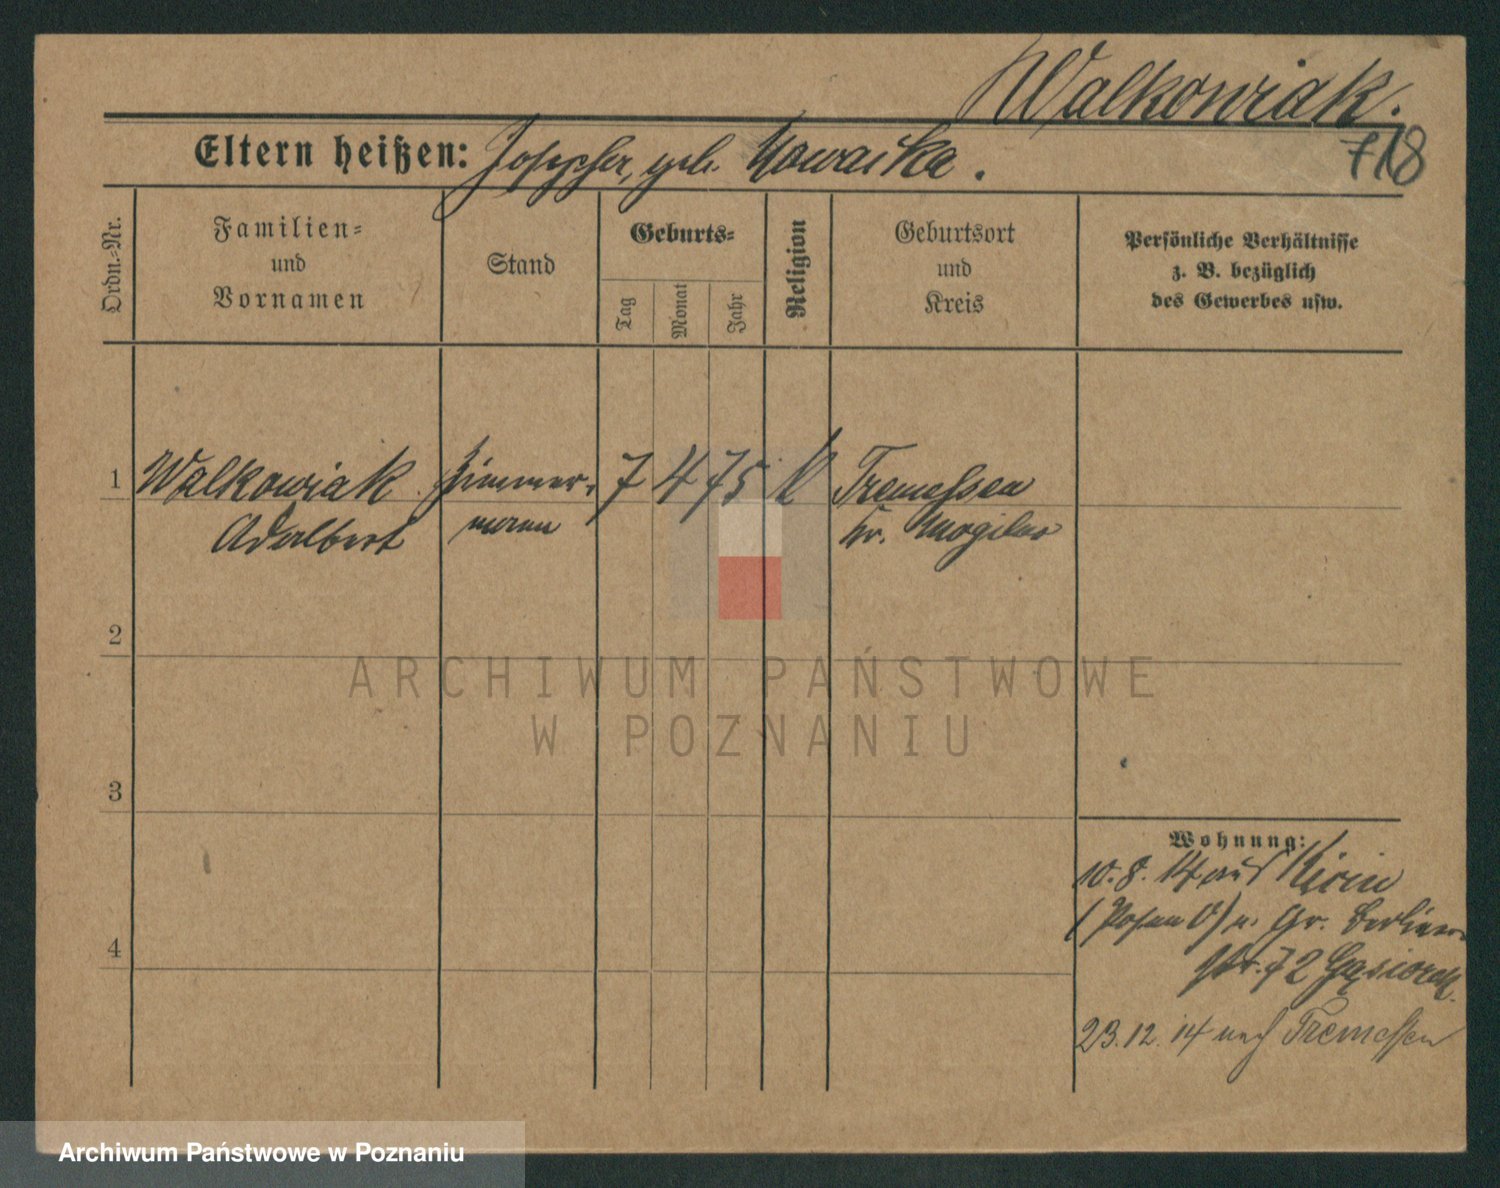 Walkowiak.
718
Eltern heißen: Josepha, geb. Nowacka.
Ordn.-Nr.
Familien-
und
Vornamen
Stand
Geburts-
Tag
Monat
Jahr
Religion
Geburtsort
und
Kreis
Persönliche Verhältnisse
z. B. bezüglich
des Gewerbes usw.
1 Walkowiak Zimmer- 7 4 75 K Tremessen
Adalbert mann Kr. Mogilno
2
ARCHIWUM PAŃSTWOWE
W POZNANIU
3
Wohnung:
10.8.14 aus
(Posen O) n. Gr. Berliner-
str. 72 Gąsiorek.
4
23.12.14 nach Tremessen
Archiwum Państwowe w Poznaniu